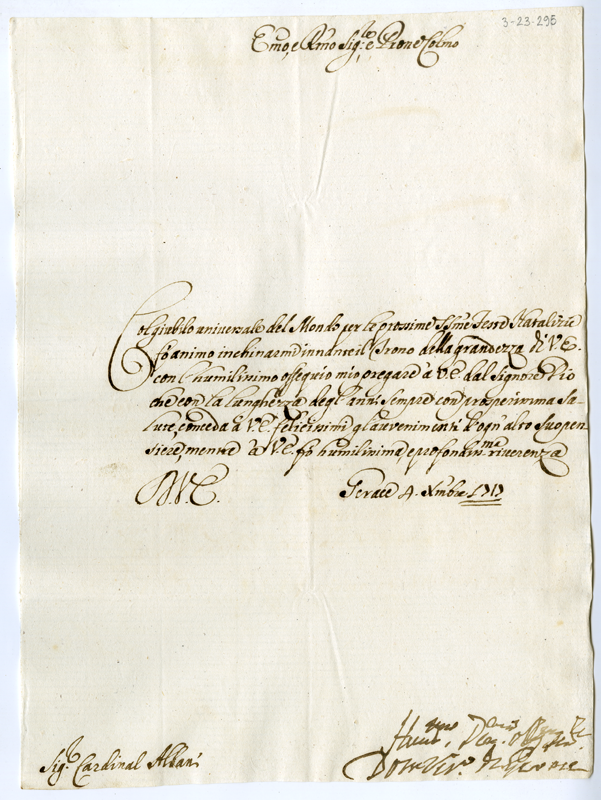 3-23-295
Emo, e Rmo Sig.re e Prone Colmo
Col giubilo universale del Mondo per le prossime SSme Feste Natalizie
fò animo inchinarmi innante il Trono della grandezza di V.E.
con l'humilissimo ossequio mio pregare à V.E. dal Signore Dio
che con la lunghezza degl'anni sempre con prosperissima sa-
lute, conceda à V.E. felicissimi gl'avvenimenti d'ogn'altro suo pen-
siere, mentre à V.E. fò humilissima, e profondissma riverenza
D.V.E.
Gerace 4. Xmbre 1719
Sig.r Cardinal Albani
Humo, Devo